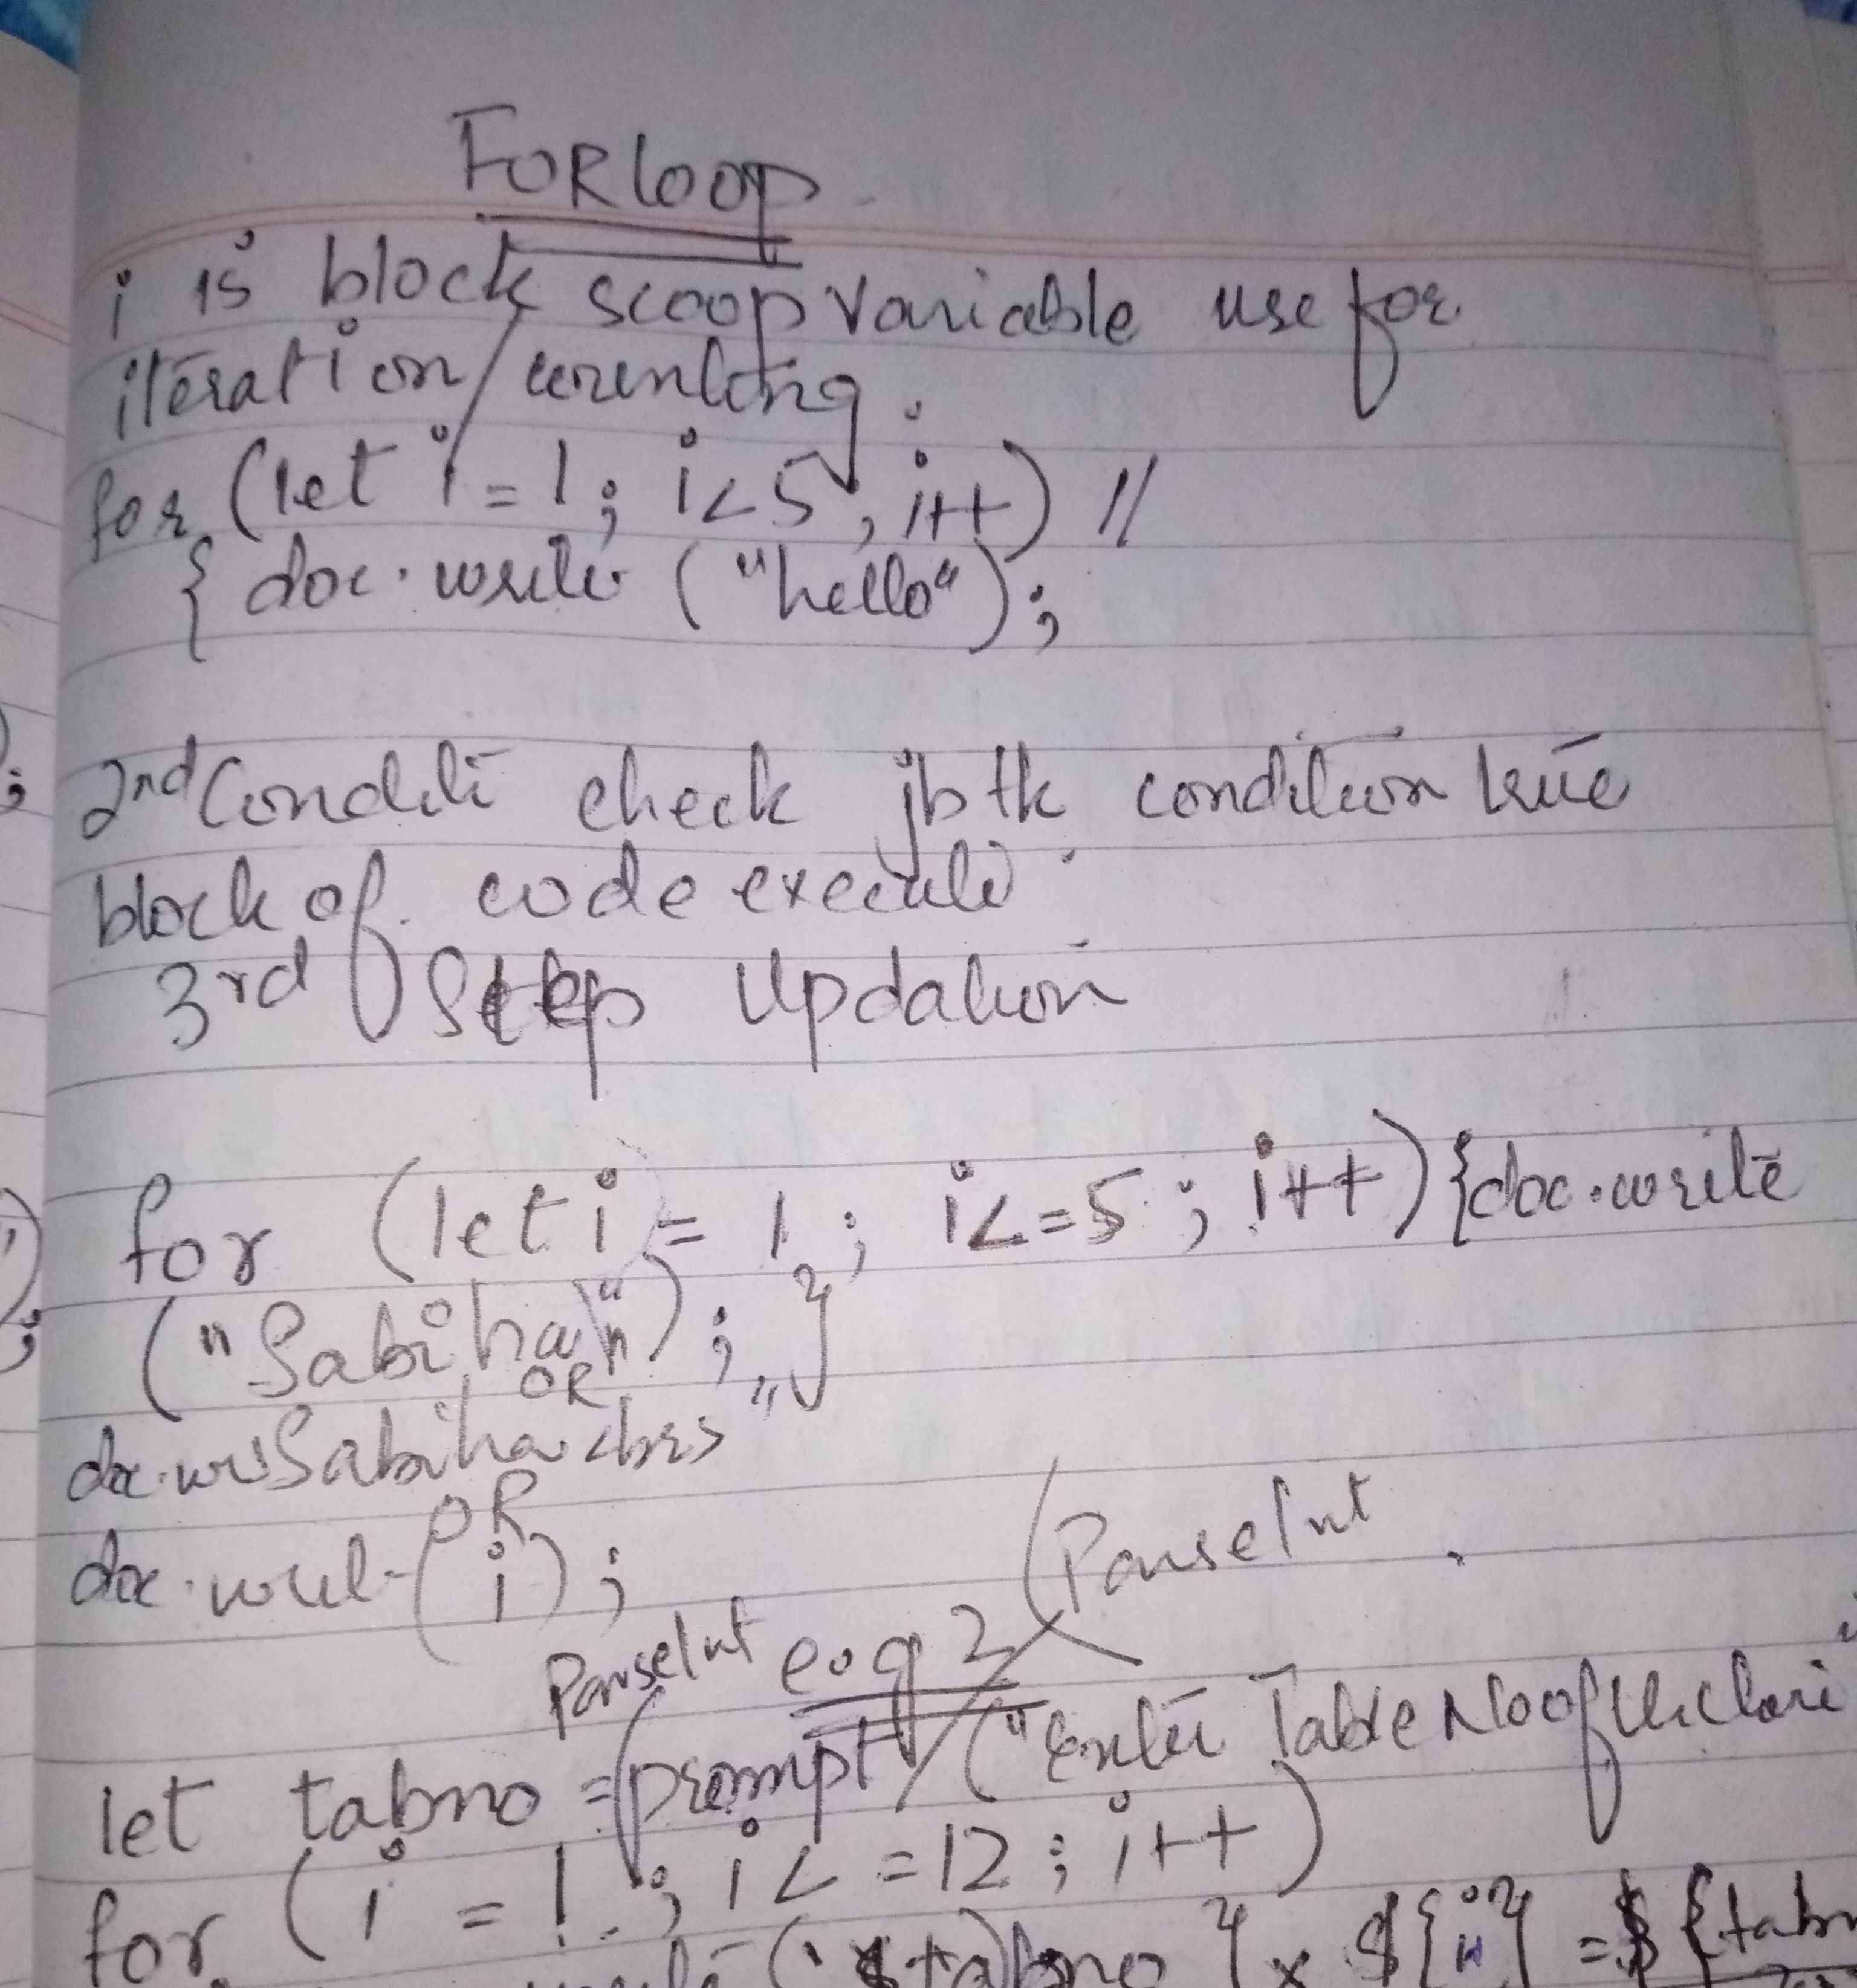 FORloop
i is block scoop variable use for
iteration / counting.
for (let i = 1; i<5, i++) //
{ doc.write ("hello");
2nd Conditi check jbtk condition true
block of code execute
3rd Step Updation
for (let i = 1; i<=5; i++) {doc.write
("Sabiha"); }
OR
doc.wr Sabiha <br>"
OR
doc.writ (i);
(ParseInt
ParseInt e.g 2
let tabno = (prompt ("Enter Table No of
for (i = 1; i<=12; i++)
(`$tabno } x ${i} = ${tabn